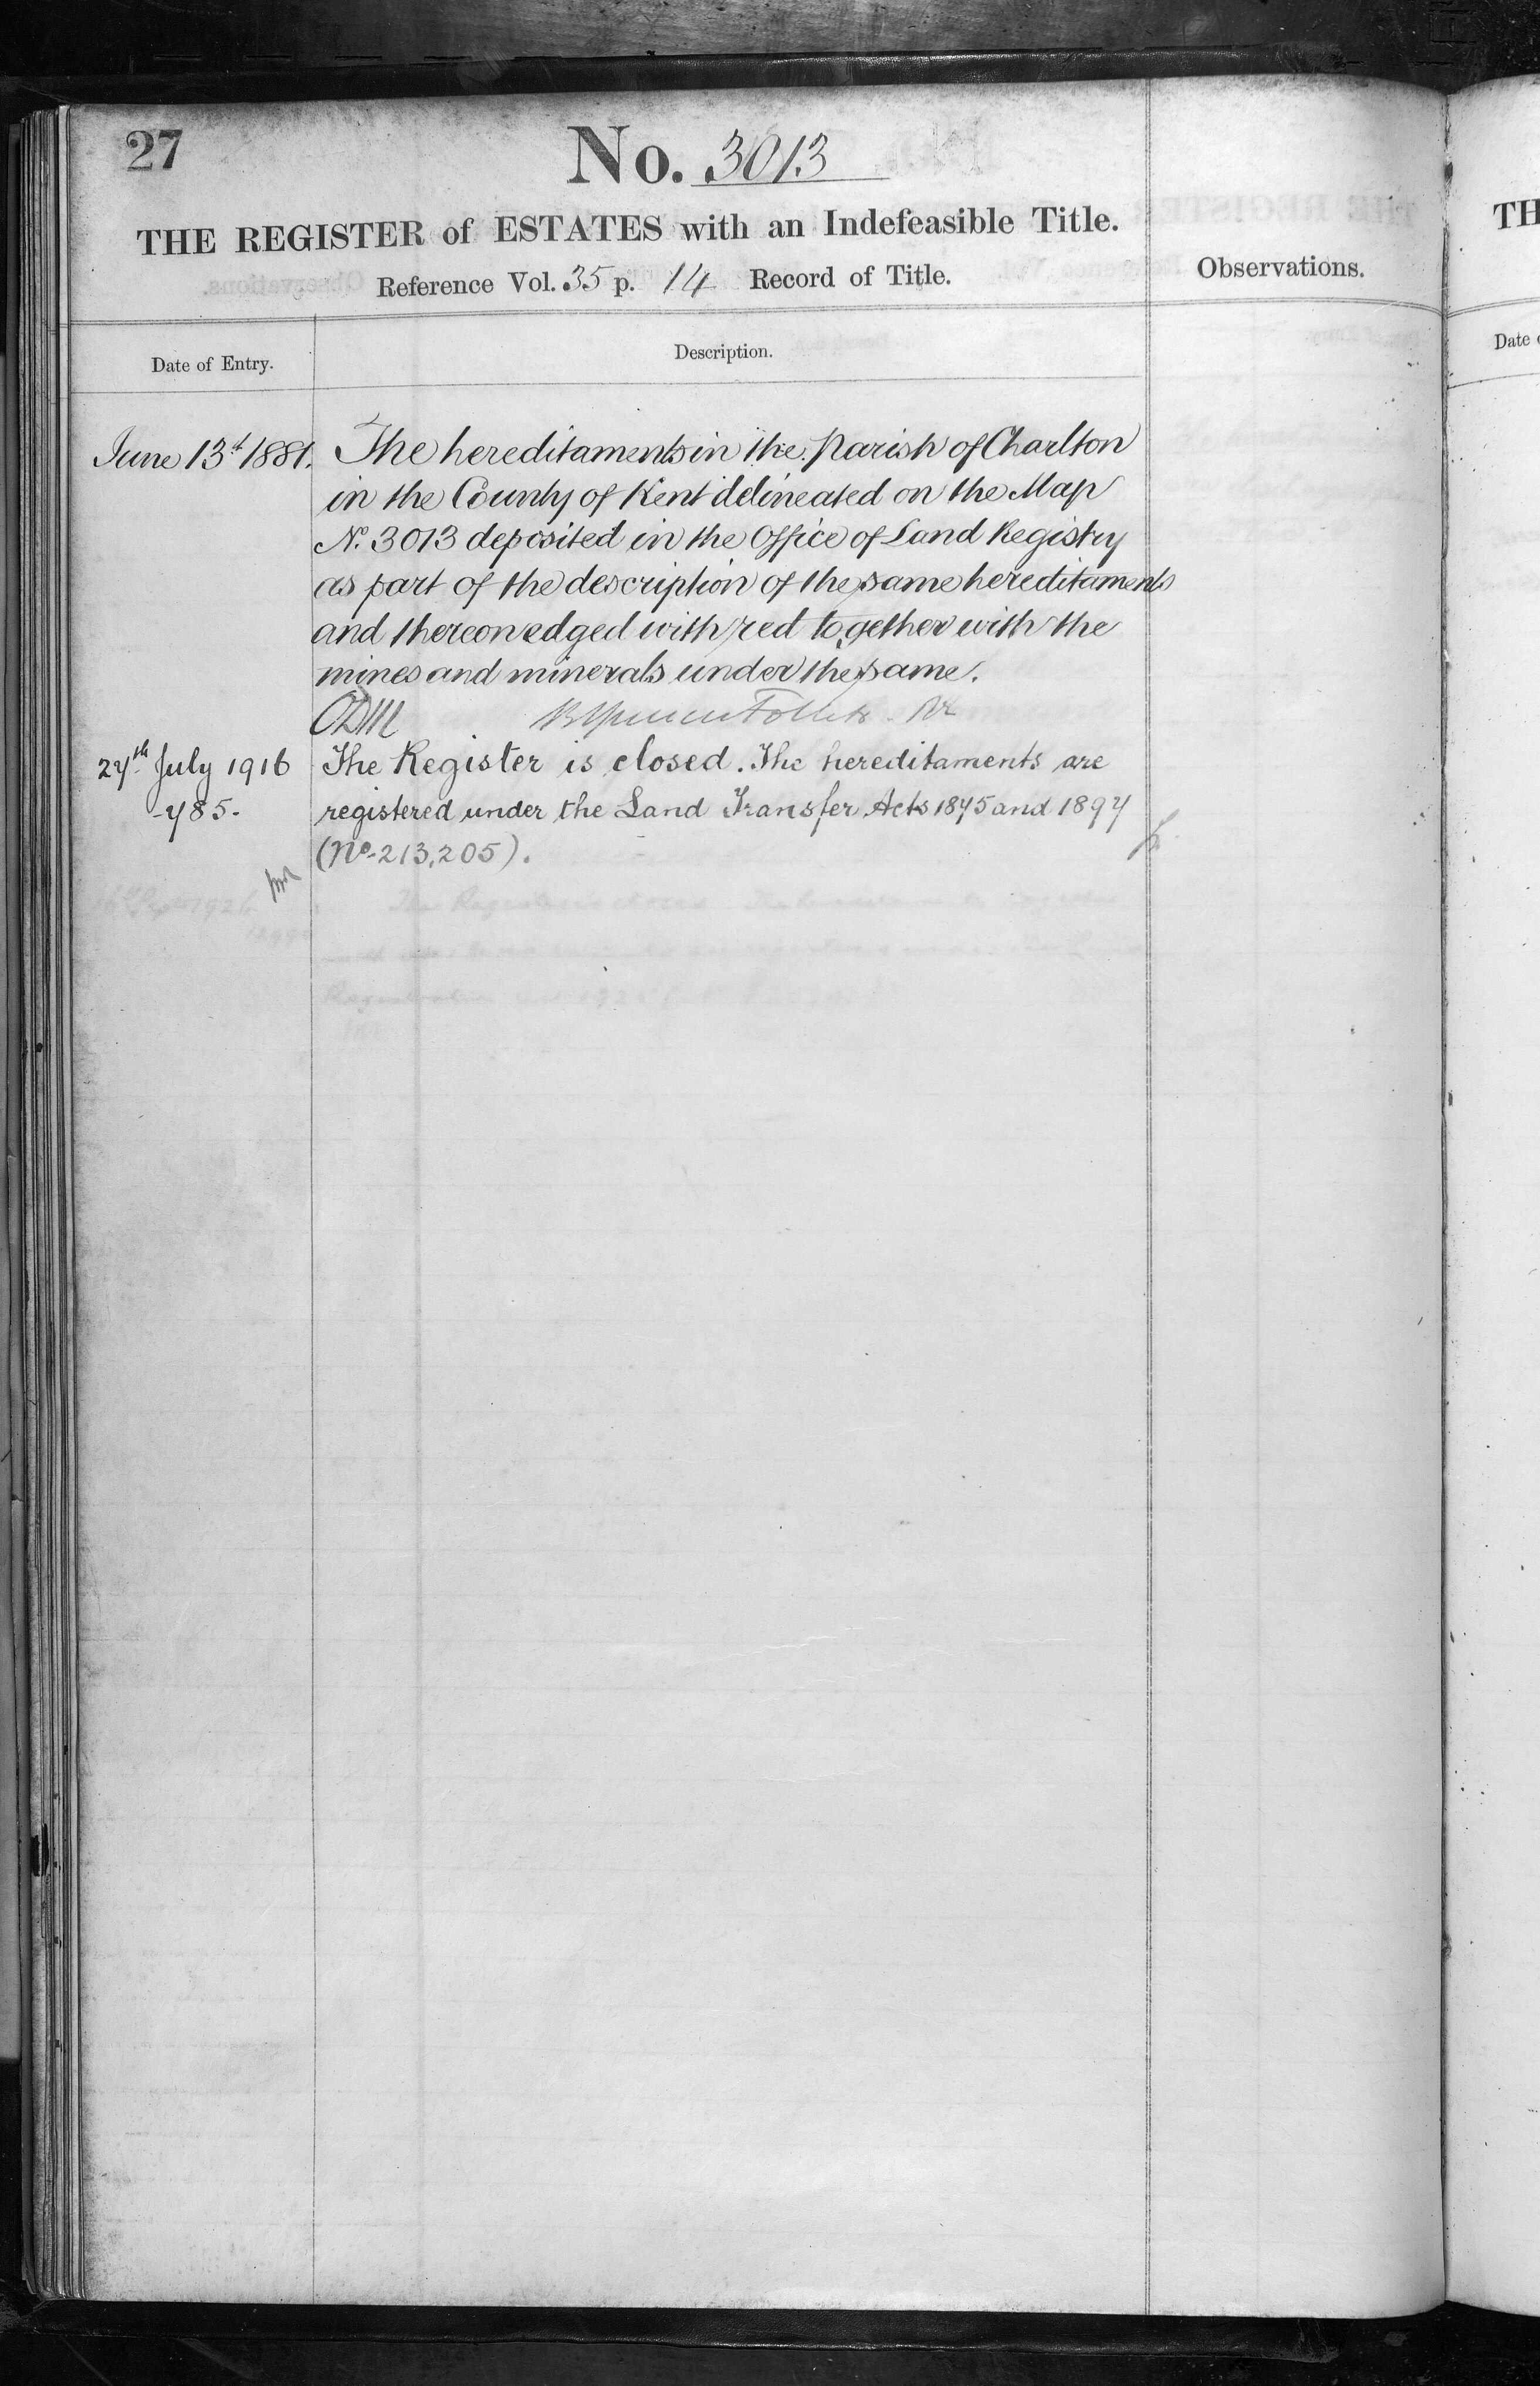 27
No. 3013
THE REGISTER of ESTATES with an Indefeasible Title.
Reference Vol. 35 p. 14 Record of Title.
Observations.
Date of Entry.
Description.
June 13th 1881. The hereditaments in the Parish of Charlton
in the County of Kent delineated on the Map
No. 3013 deposited in the Office of Land Registry
as part of the description of the same hereditaments
and thereon edged with red together with the
mines and minerals under the same.
27th July 1916 The Register is closed. The hereditaments are
-785- registered under the Land Transfer Acts 1875 and 1897
(No. 213,205).
TH
Date